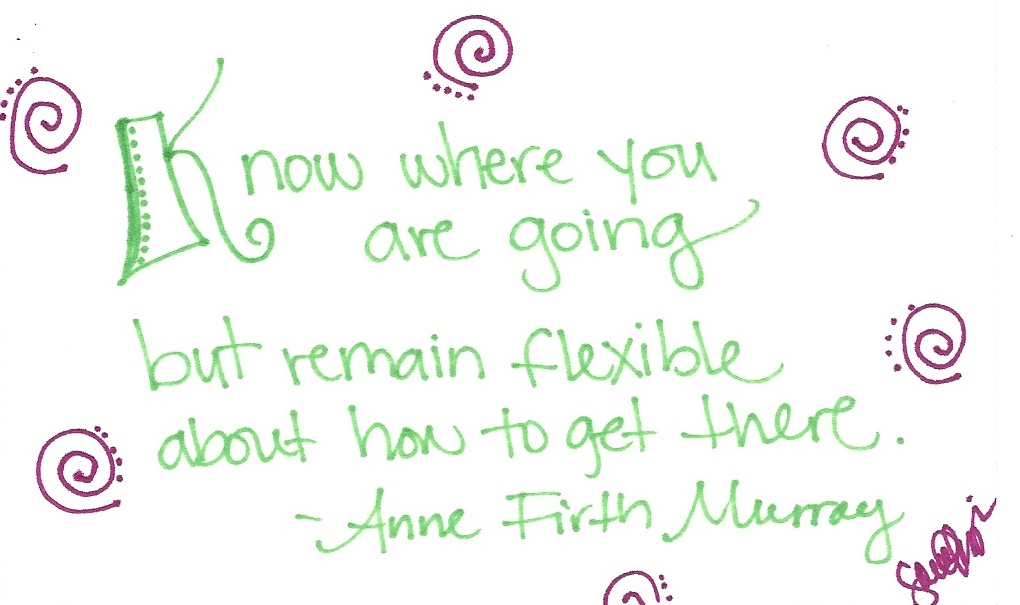 Know where you
are going
but remain flexible
about how to get there.
- Anne Firth Murray